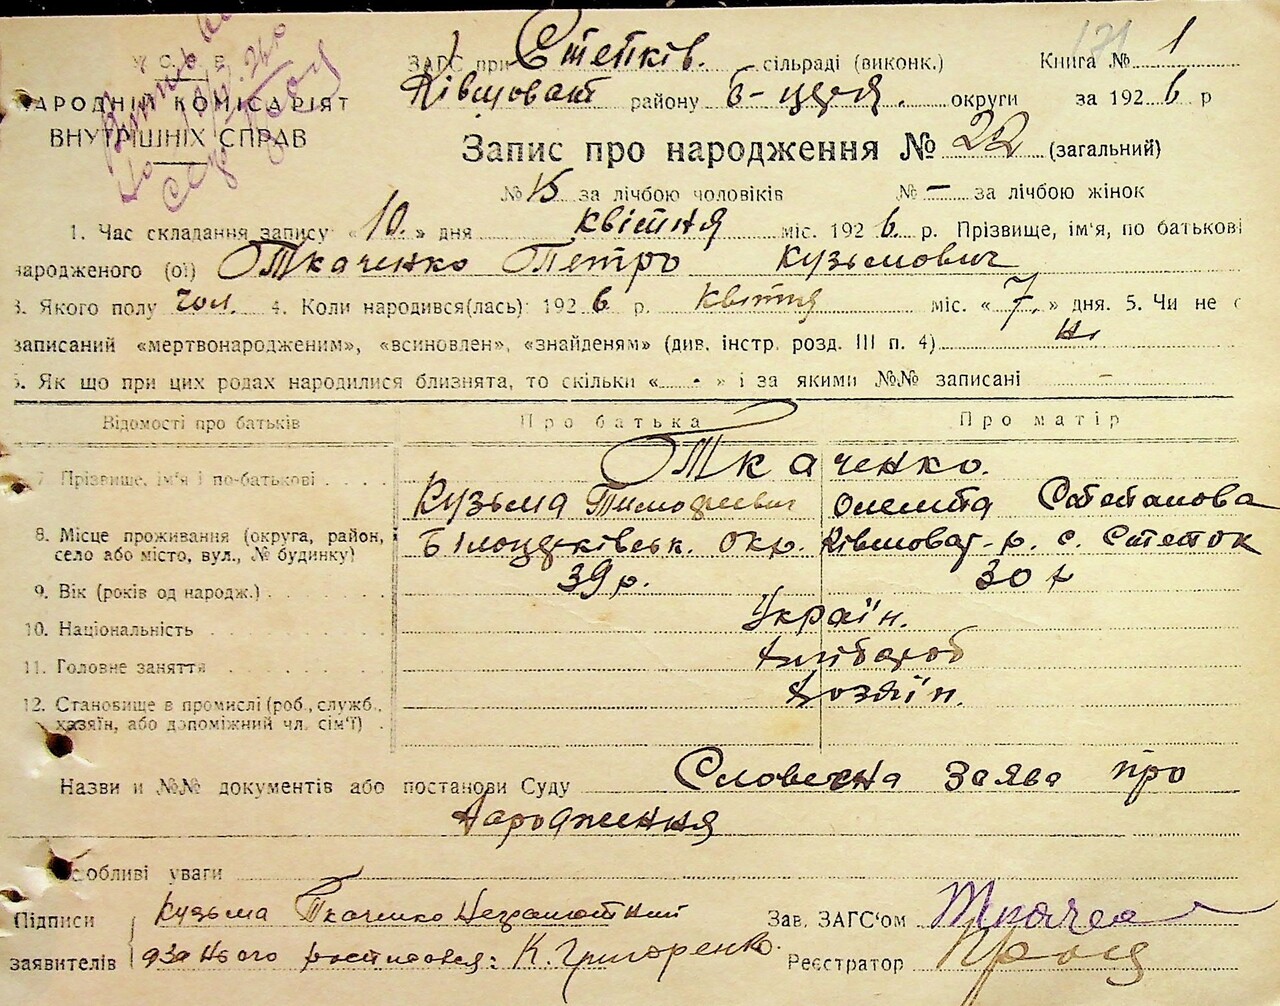 У. С. Р. Р.
НАРОДНІЙ КОМІСАРІЯТ
ВНУТРІШНІХ СПРАВ
171
ЗАГС при Степків. сільраді (виконк.) Книга № 1
Ківшоват району Б-церк. округи за 1926 р
Запис про народження № 22 (загальний)
№ 15 за лічбою чоловіків № – за лічбою жінок
1. Час складання запису «10.» дня квітня міс. 1926 р. Прізвище, ім'я, по батькові
народженого (ої) Ткаченко Петро Кузьмович
3. Якого полу чол. 4. Коли народився(лась): 1926 р. квітня міс. «7.» дня. 5. Чи не є
записаний «мертвонародженим», «всиновлен», «знайденям» (див. інстр. розд. III п. 4) Ні
6. Як що при цих родах народилися близнята, то скільки « - » і за якими №№ записані –
Відомості про батьків Про батька Про матір
7. Прізвище, ім'я і по-батькові Ткаченко.
Кузьма Тимофієвич Степанова
8. Місце проживання (округа, район, село або місто, вул., № будинку) Білоцерківськ. окр. Ківшоват-р. с. Степок
9. Вік (років од народж.) 39 р. 30 р
10. Національність Україн.
11. Головне заняття Хлібороб
12. Становище в промислі (роб., служб., хазяїн, або допоміжний чл. сім'ї) Хозяїн.
Назви и №№ документів або постанови Суду Словесна заява про
народження
Особливі уваги
Підписи заявителів Кузьма Ткаченко Неграмотний
а за нього росписався: К. Григоренко.
Зав. ЗАГС'ом
Реєстратор